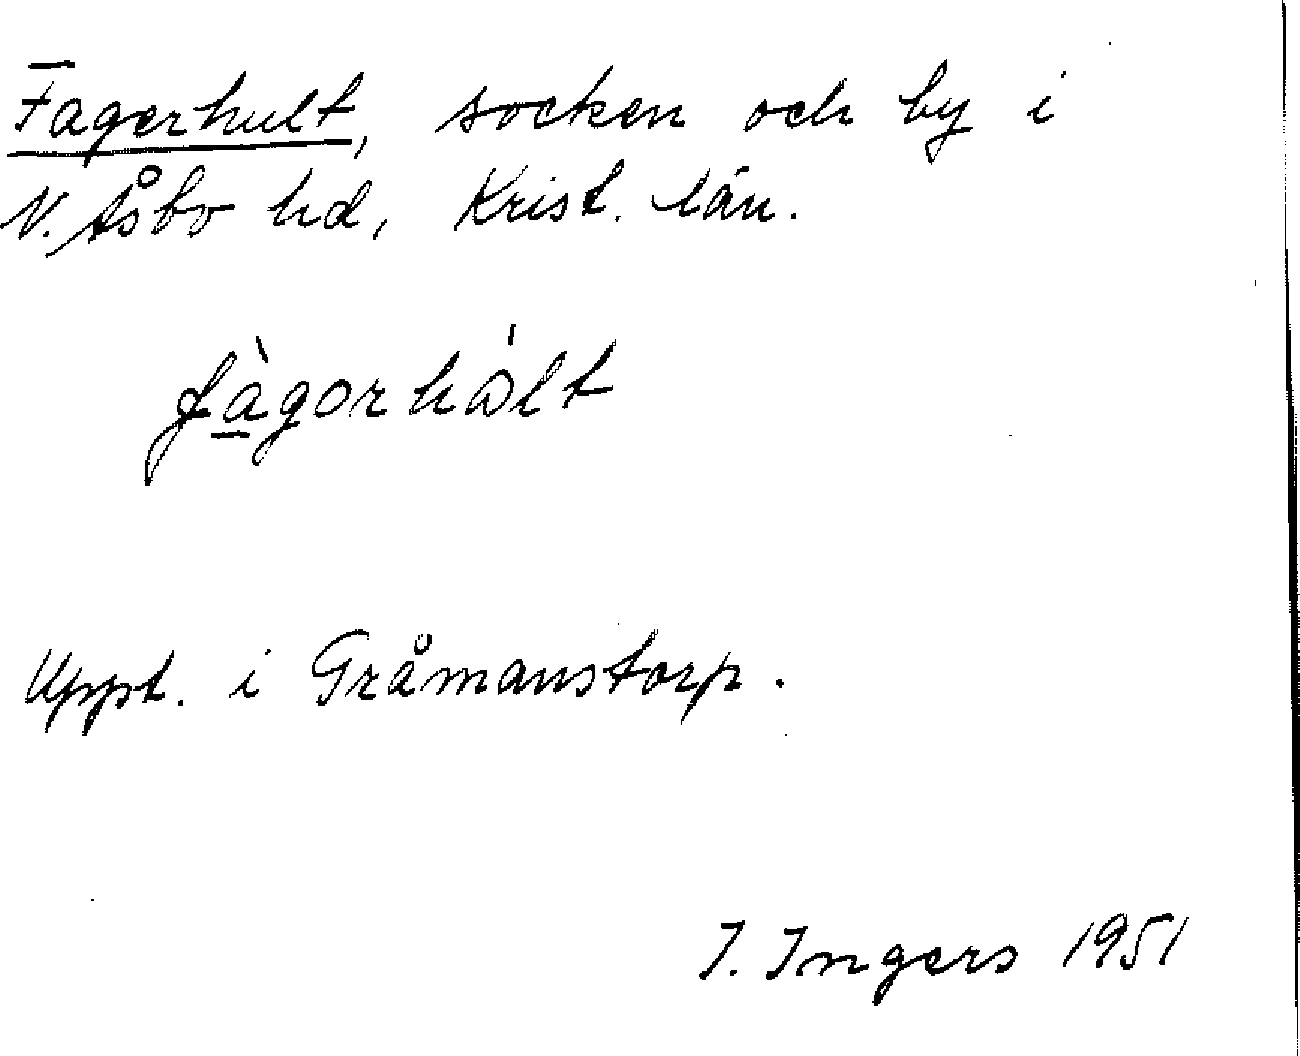 Fagerhult, socken och by i
V. Åsbo hd, Krist. län.
fàgorhólt
Uppt. i Gråmanstorp.
I. Ingers 1951